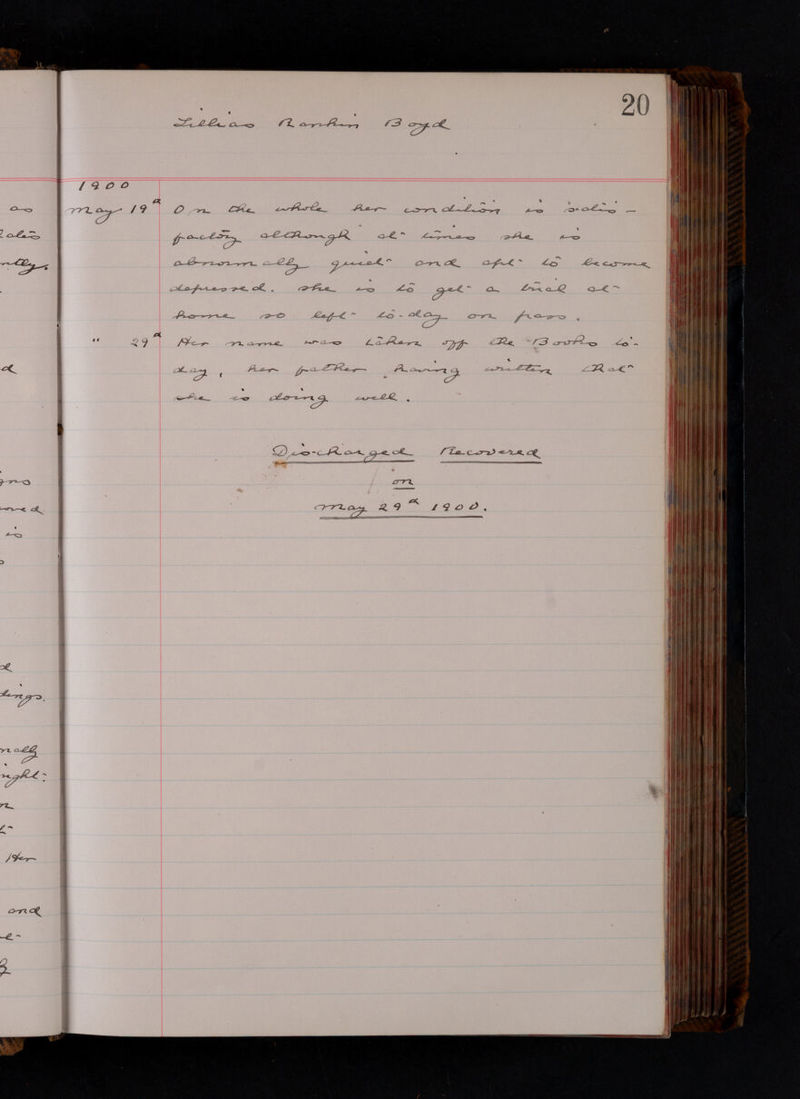 20
Lillias Rankin Boyd
1900
May 19th On the whole her condition is satis-
factory although at times she is
abnormally quiet and apt to become
depressed. She is to get a trial at
home so left to-day on pass.
" 29th Her name was taken off the Books to-
day, her father having written that
she is doing well.
Discharged Recovered
on
May 29th 1900.
as
ings.
ight:
Her
and